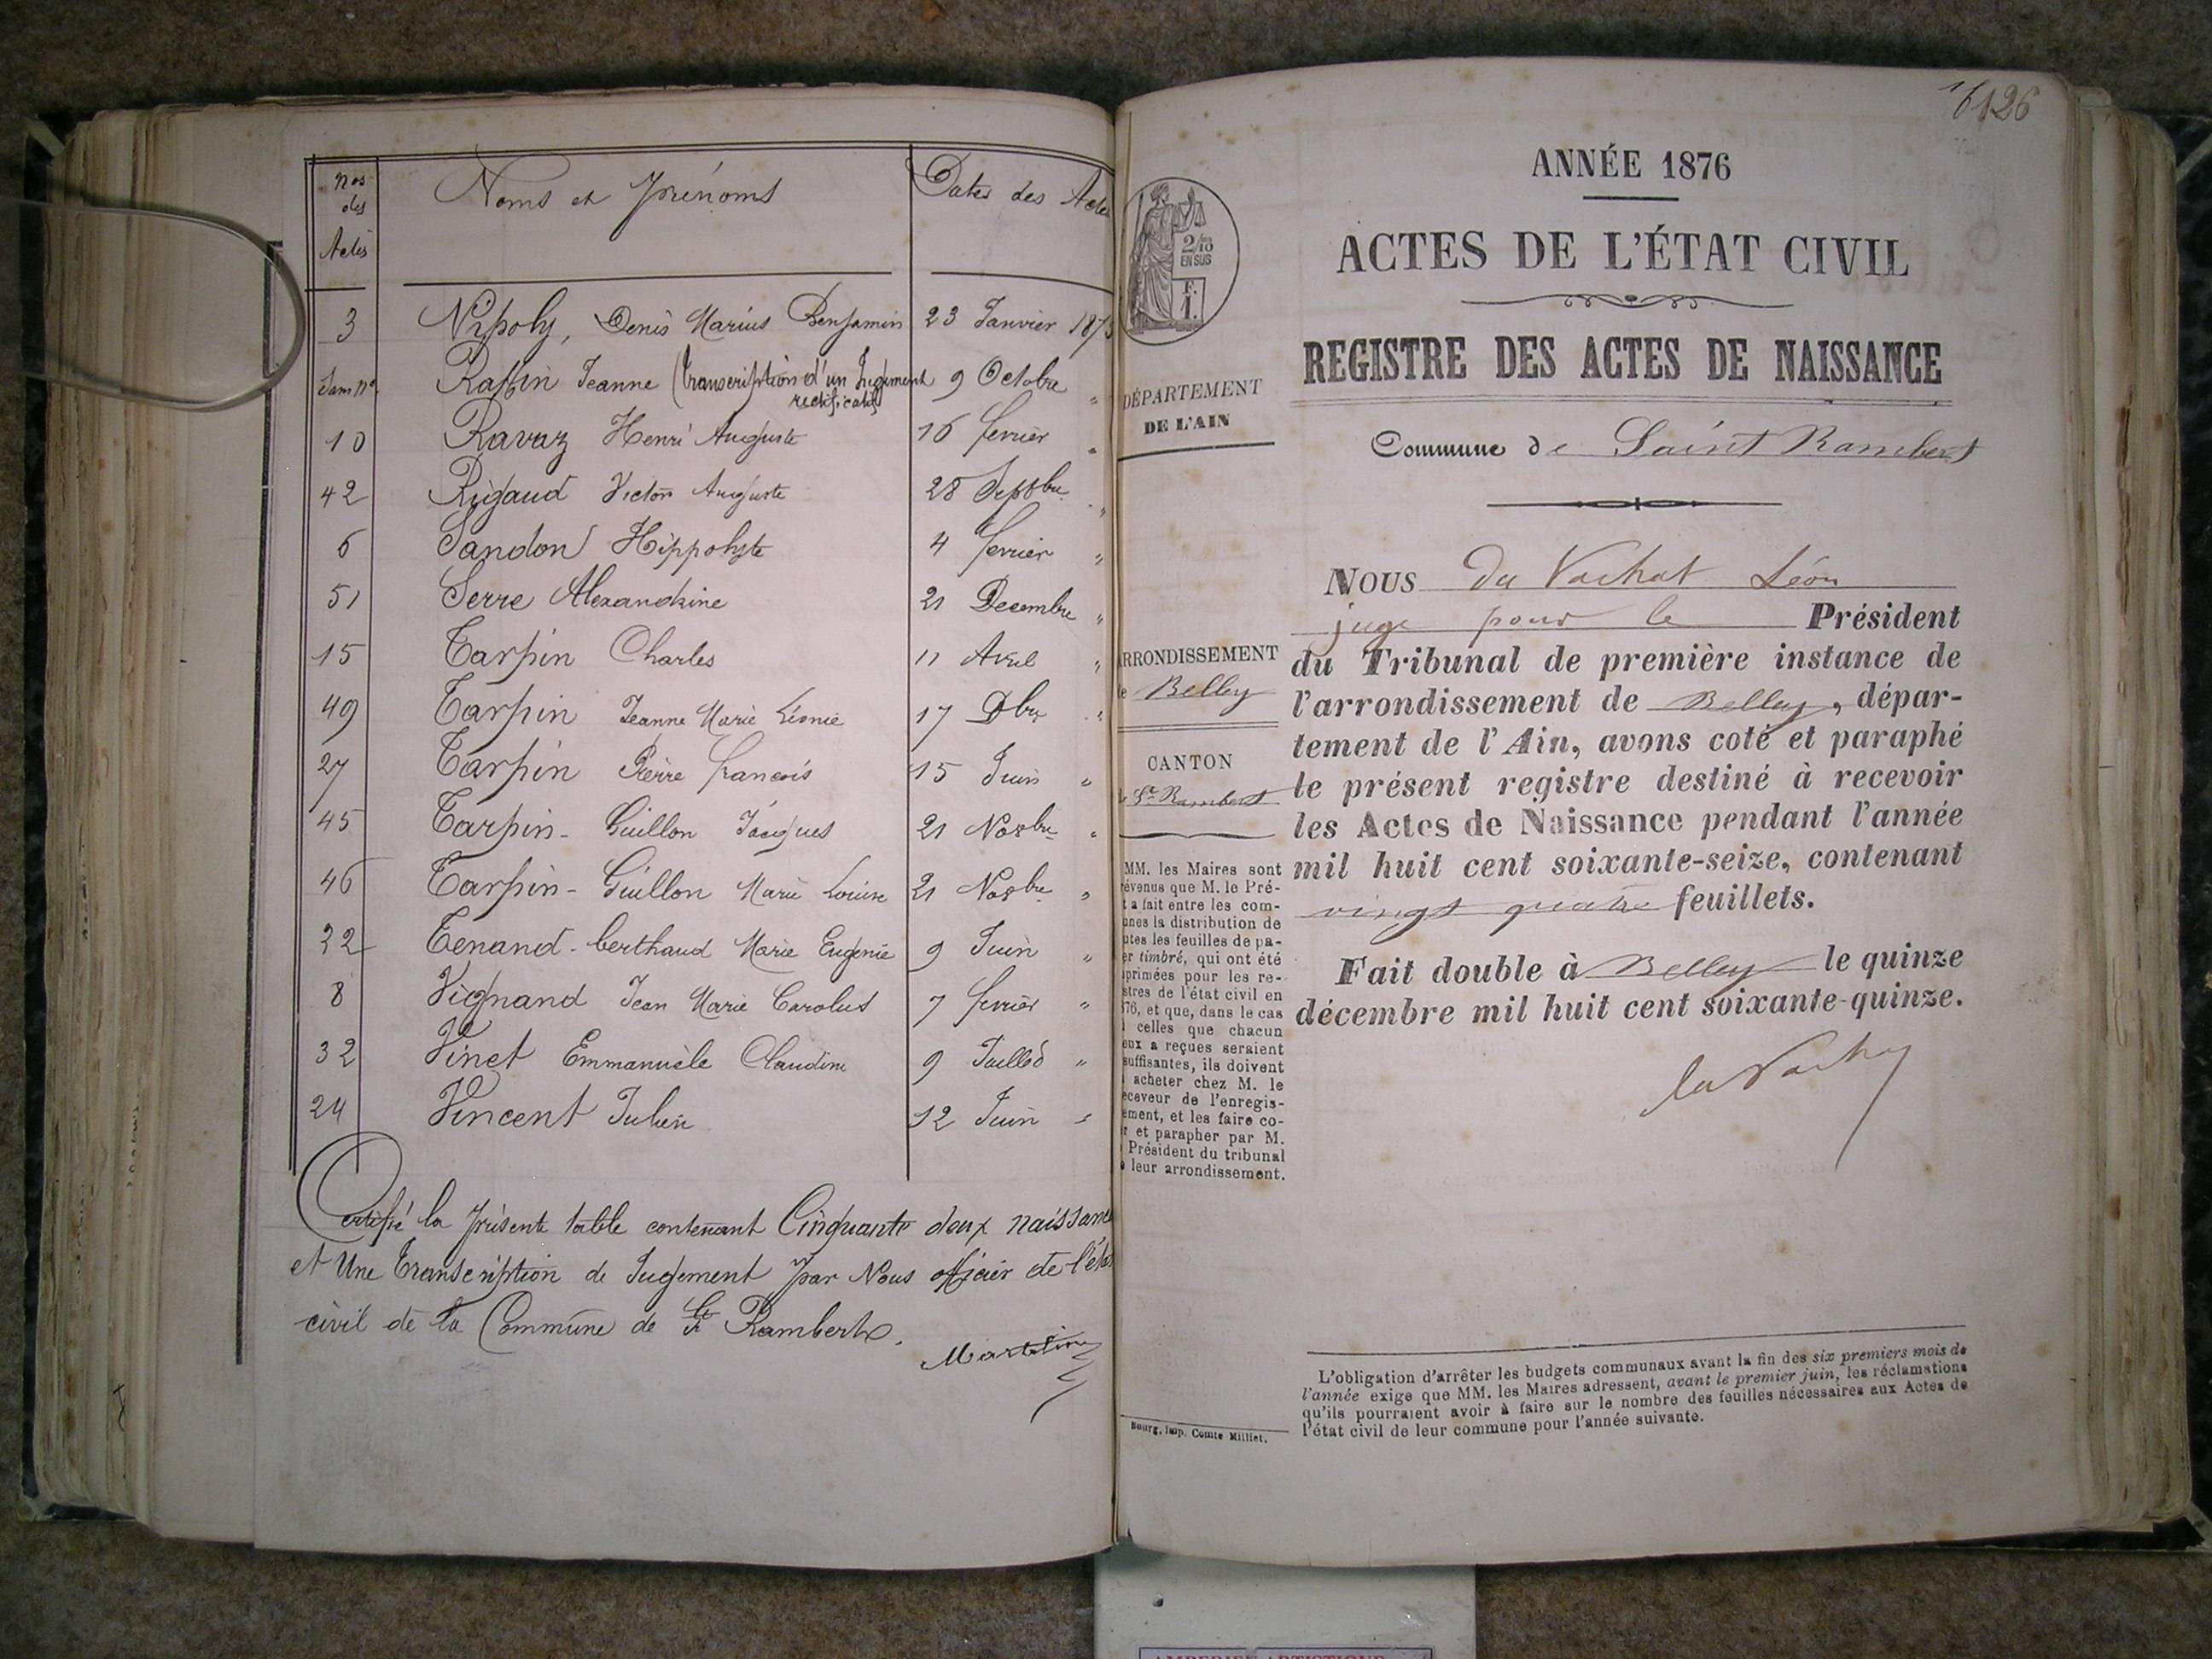 Nos des Actes Noms et Prénoms Dates des Actes
3 Nipoly, Denis Marius Benjamin 23 Janvier 187
Sans No Raffin Jeanne (transcription d'un Jugement rectificatif) 9 Octobre "
10 Ravaz Henri Auguste 16 février "
42 Rigaud Victor Auguste 28 Septbre "
6 Sandon Hippolyte 4 février "
51 Serre Alexandrine 21 Decembre "
15 Tarpin Charles 11 Avril "
49 Tarpin Jeanne Marie Léonie 17 Dbre "
27 Tarpin Pierre françois 15 Juin "
45 Tarpin-Guillon Jacques 21 Novbre "
46 Tarpin-Guillon Marie Louise 21 Novbre "
22 Tenand-berthaud Marie Eugénie 9 Juin "
8 Vignand Jean Marie Carolus 7 février "
32 Vinet Emmanuèle Claudine 9 Juillet "
24 Vincent Julien 12 Juin "
Certifié la présente table contenant Cinquante deux naissance
et Une transcription de Jugement par Nous officier de l'état
civil de la Commune de St Rambert.
Martin
126
ANNÉE 1876
ACTES DE L'ÉTAT CIVIL
REGISTRE DES ACTES DE NAISSANCE
Commune de Saint Rambert
2/10
EN SUS
F.
1.
DÉPARTEMENT
DE L'AIN
ARRONDISSEMENT
de Belley
CANTON
de St Rambert
MM. les Maires sont
évenus que M. le Pré-
t a fait entre les com-
unes la distribution de
utes les feuilles de pa-
er timbré, qui ont été
primées pour les re-
stres de l'état civil en
76, et que, dans le cas
celles que chacun
eux a reçues seraient
suffisantes, ils doivent
acheter chez M. le
eceveur de l'enregis-
ement, et les faire co-
r et parapher par M.
Président du tribunal
e leur arrondissement.
Bourg, Imp. Comte Milliet.
NOUS Du Vachat Léon
juge pour le Président
du Tribunal de première instance de
l'arrondissement de Belley, dépar-
tement de l'Ain, avons coté et paraphé
le présent registre destiné à recevoir
les Actes de Naissance pendant l'année
mil huit cent soixante-seize, contenant
vingt quatre feuillets.
Fait double à Belley le quinze
décembre mil huit cent soixante-quinze.
L'obligation d'arrêter les budgets communaux avant la fin des six premiers mois de
l'année exige que MM. les Maires adressent, avant le premier juin, les réclamations
qu'ils pourraient avoir à faire sur le nombre des feuilles nécessaires aux Actes de
l'état civil de leur commune pour l'année suivante.